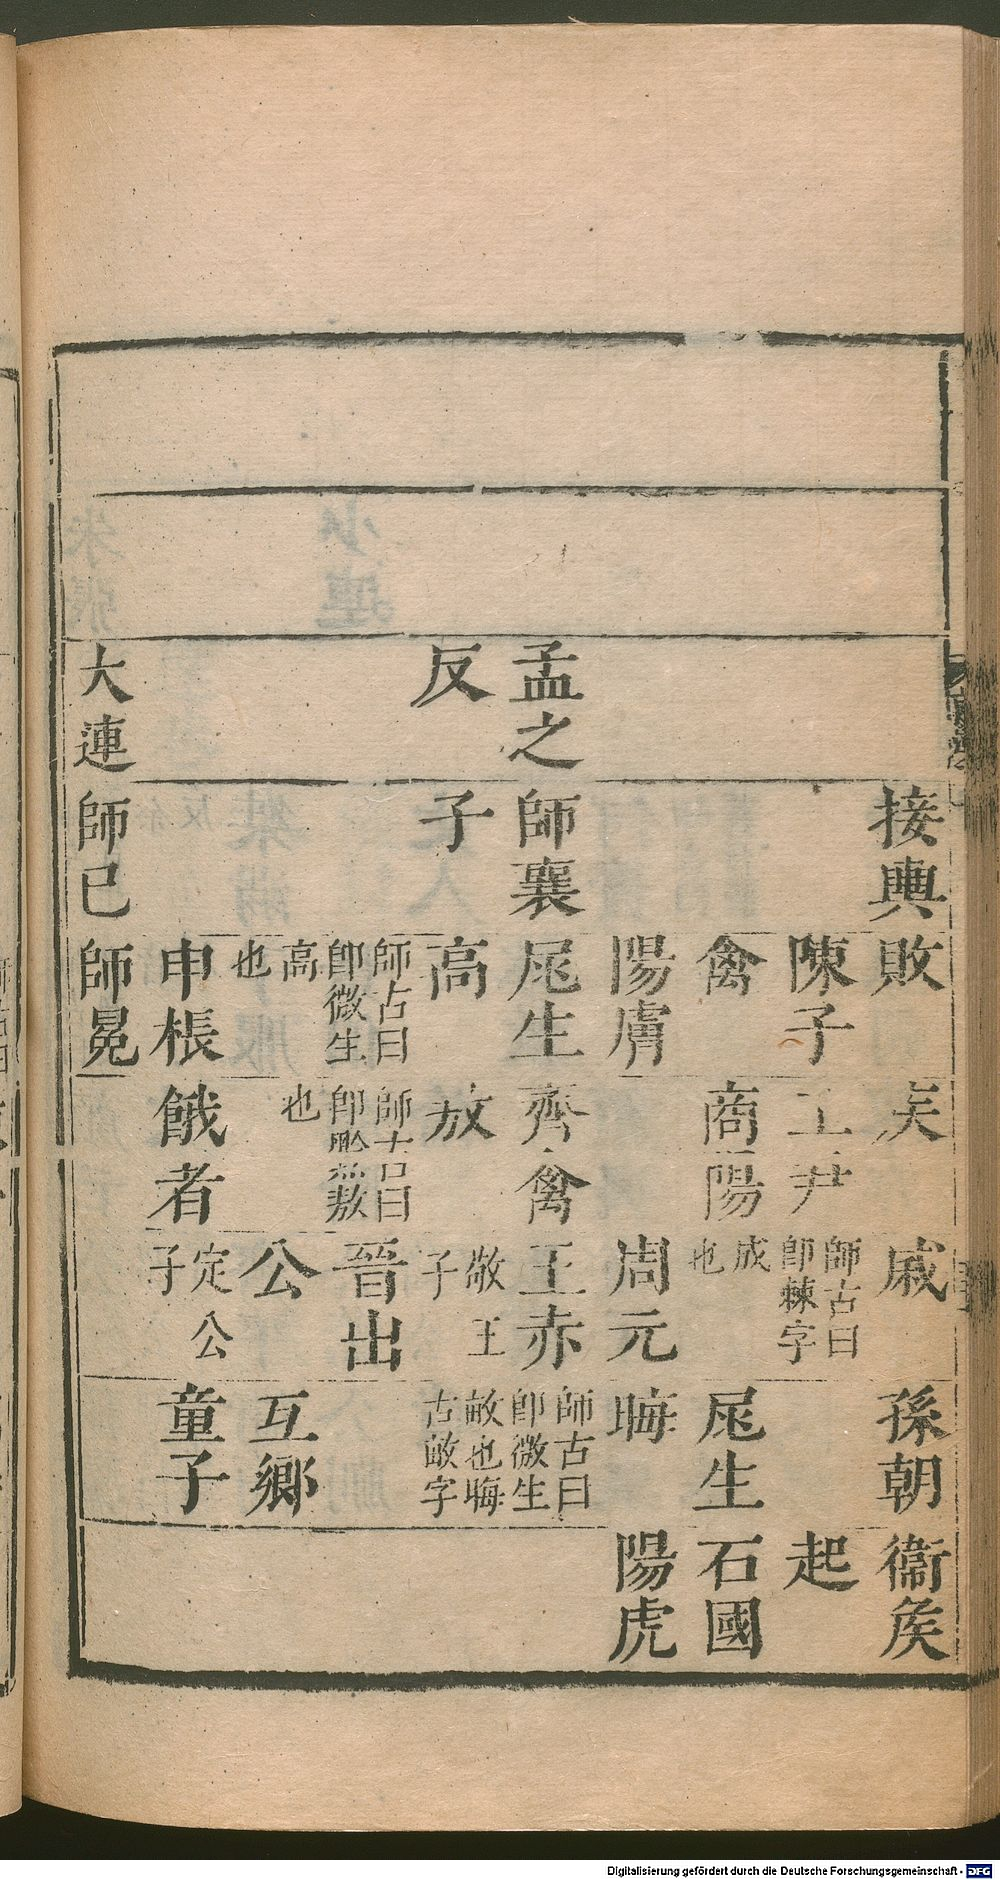 接輿
敗
矦
戚
孫朝
衞矦
陳子
工尹
師古曰
卽棘字
起
禽
商陽
成
也
尾生
石國
陽膚
周元
晦
陽虎
孟之
師襄
尾生
齊禽
王赤
師古曰
卽微生
畝也晦
古畝字
反
子
高
敖
敬王
子
師古曰
卽微生
高
也
師古曰
卽黔敖
也
晉出
公
互鄉
申棖
餓者
定公
子
童子
大連
師已
師冕
Digitalisierung gefördert durch die Deutsche Forschungsgemeinschaft - DFG